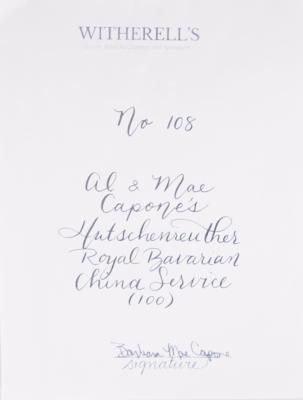 WITHERELL'S
No 108
Al & Mae
Capone's
Hutschenreuther
Royal Bavarian
China Service
(100)
Barbara Mae Capone
signature